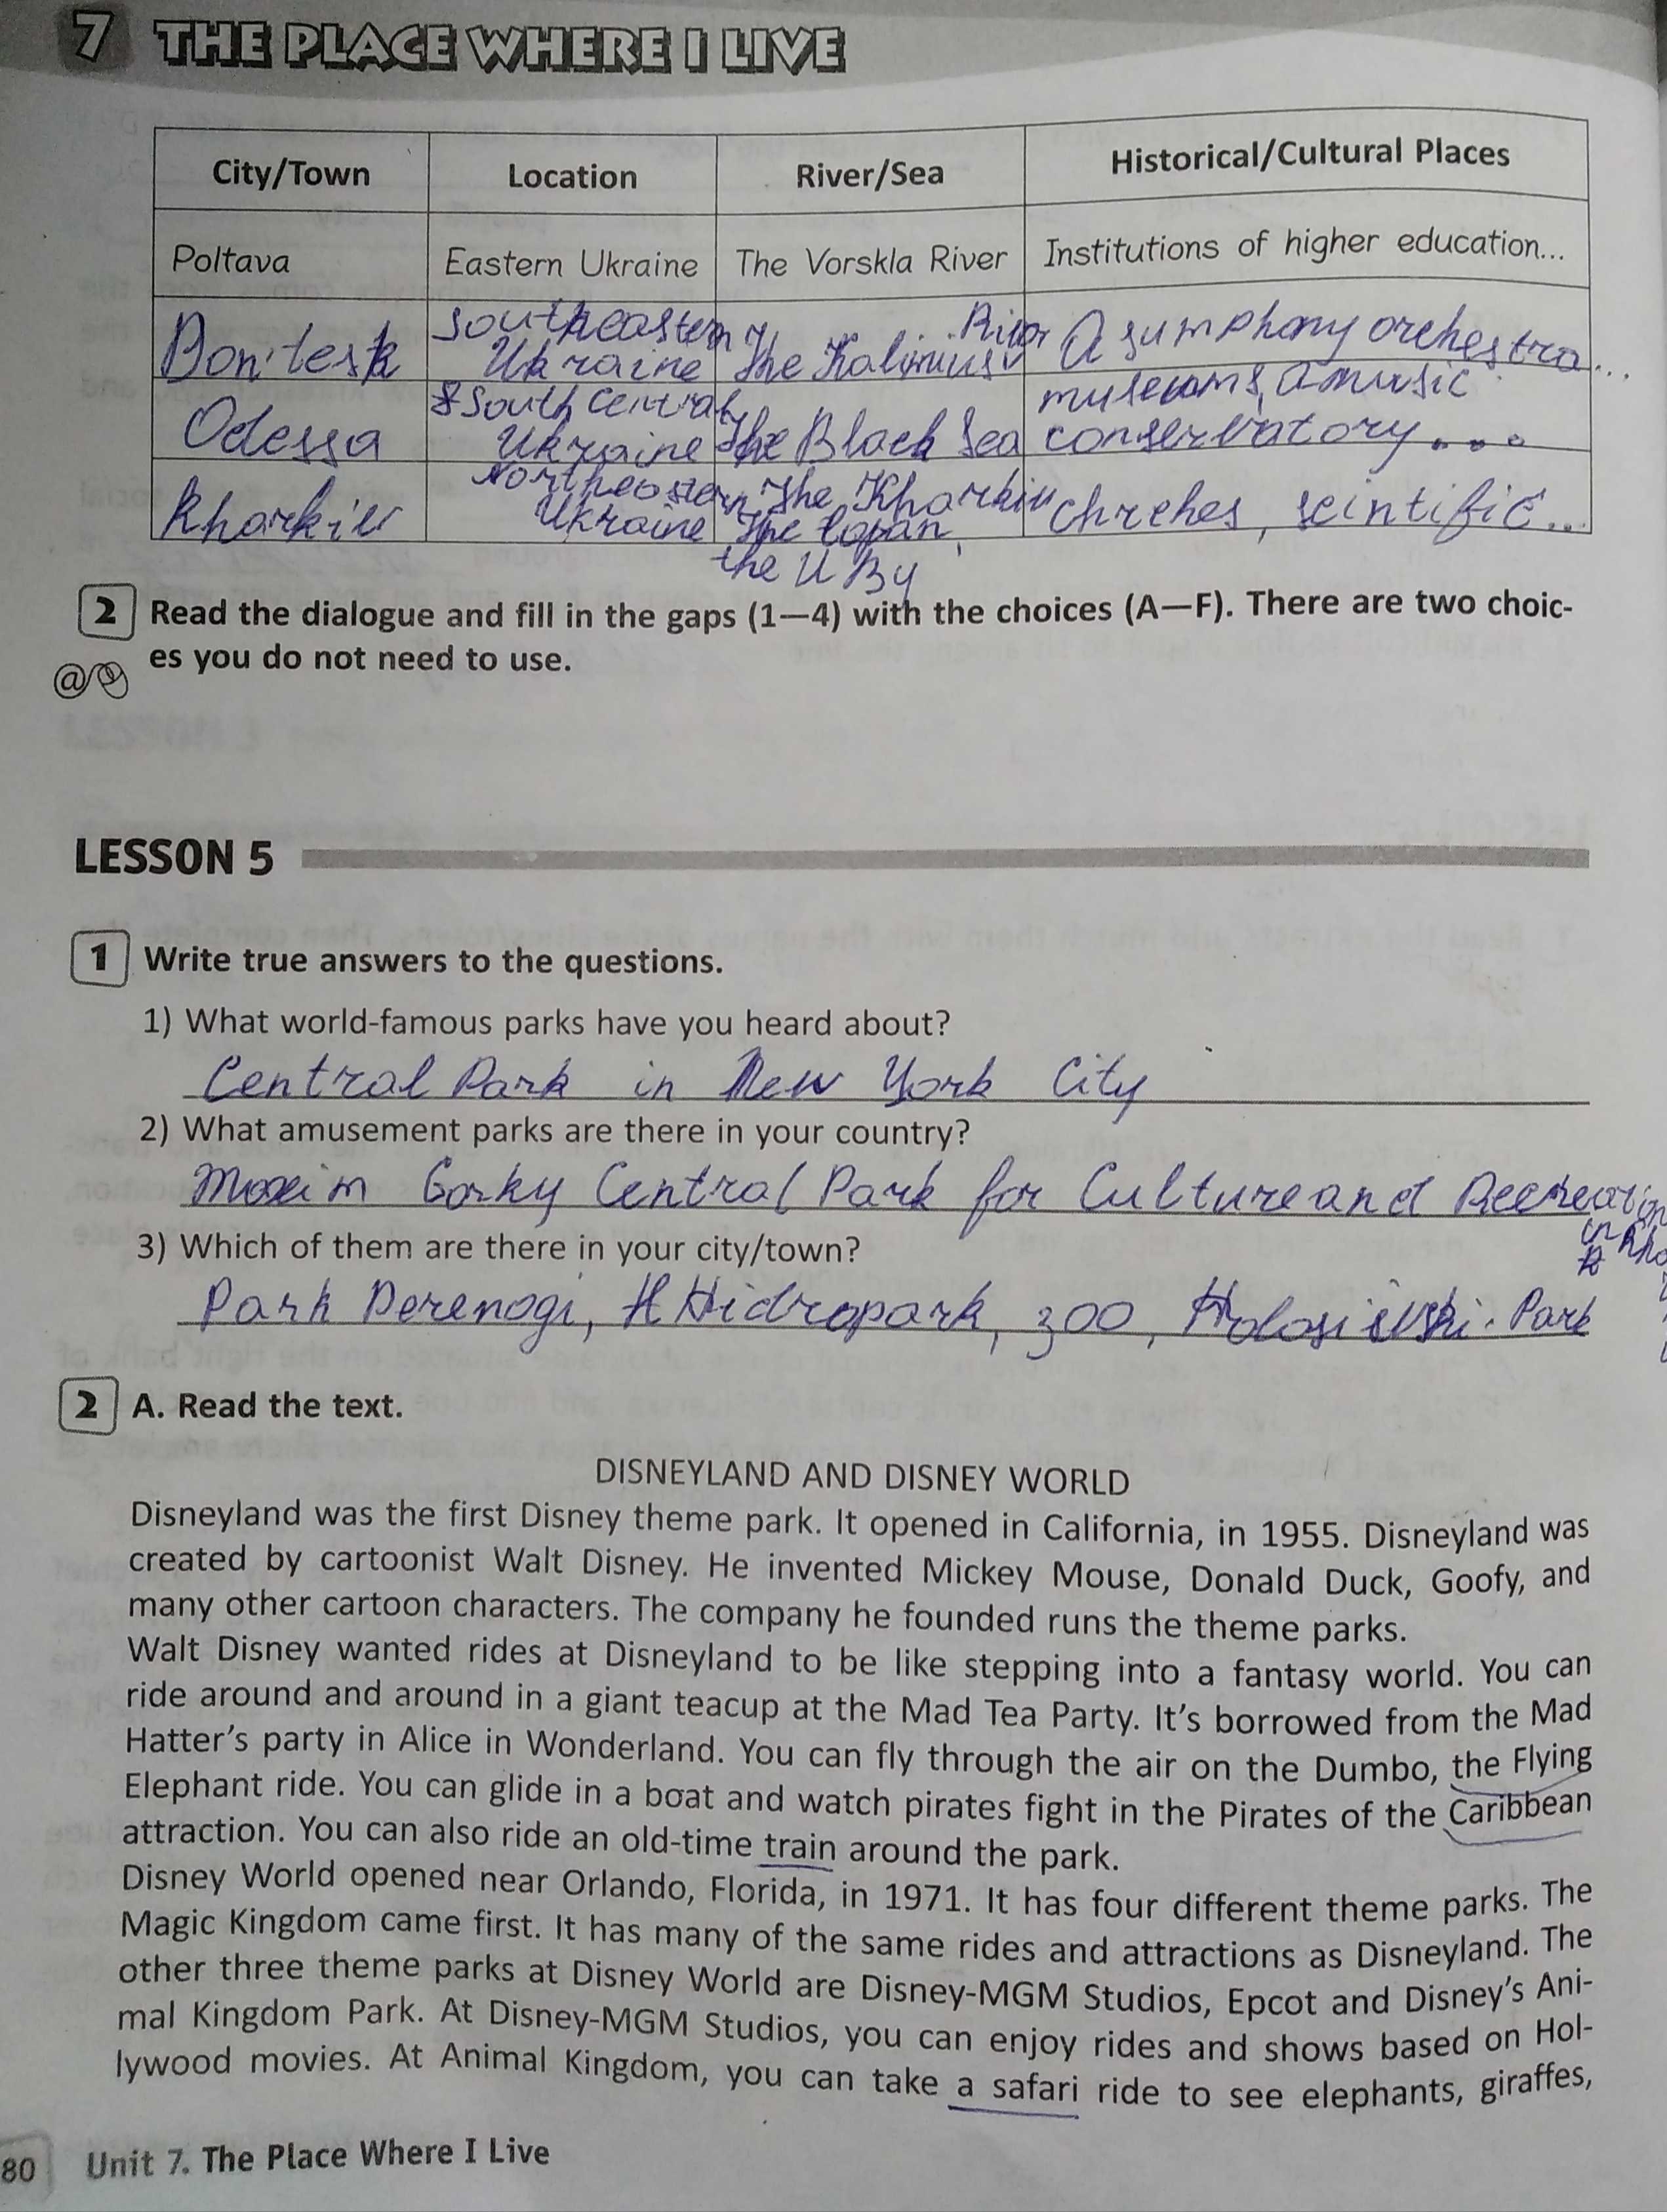 7 THE PLACE WHERE I LIVE
City/Town Location River/Sea Historical/Cultural Places
Poltava Eastern Ukraine The Vorskla River Institutions of higher education...
Southeastern River A sumphony orchestra...
Don'tesk Ukraine The Kalimius
South Central museums, a music
Odessa Ukraine The Black Sea conservatory...
Northeastern The Kharkiv
Kharkiv Ukraine The Lopan, chrches, scintific...
the UBy
2 Read the dialogue and fill in the gaps (1—4) with the choices (A—F). There are two choic-
es you do not need to use.
LESSON 5
1 Write true answers to the questions.
1) What world-famous parks have you heard about?
Central Park in New York City
2) What amusement parks are there in your country?
Maxim Gorky Central Park for Culture and Recreation
in Kha
3) Which of them are there in your city/town?
Park Peremogi, Hidropark, zoo, Holosiivski Park
2 A. Read the text.
DISNEYLAND AND DISNEY WORLD
Disneyland was the first Disney theme park. It opened in California, in 1955. Disneyland was
created by cartoonist Walt Disney. He invented Mickey Mouse, Donald Duck, Goofy, and
many other cartoon characters. The company he founded runs the theme parks.
Walt Disney wanted rides at Disneyland to be like stepping into a fantasy world. You can
ride around and around in a giant teacup at the Mad Tea Party. It's borrowed from the Mad
Hatter's party in Alice in Wonderland. You can fly through the air on the Dumbo, the Flying
Elephant ride. You can glide in a boat and watch pirates fight in the Pirates of the Caribbean
attraction. You can also ride an old-time train around the park.
Disney World opened near Orlando, Florida, in 1971. It has four different theme parks. The
Magic Kingdom came first. It has many of the same rides and attractions as Disneyland. The
other three theme parks at Disney World are Disney-MGM Studios, Epcot and Disney's Ani-
mal Kingdom Park. At Disney-MGM Studios, you can enjoy rides and shows based on Hol-
lywood movies. At Animal Kingdom, you can take a safari ride to see elephants, giraffes,
80 Unit 7. The Place Where I Live